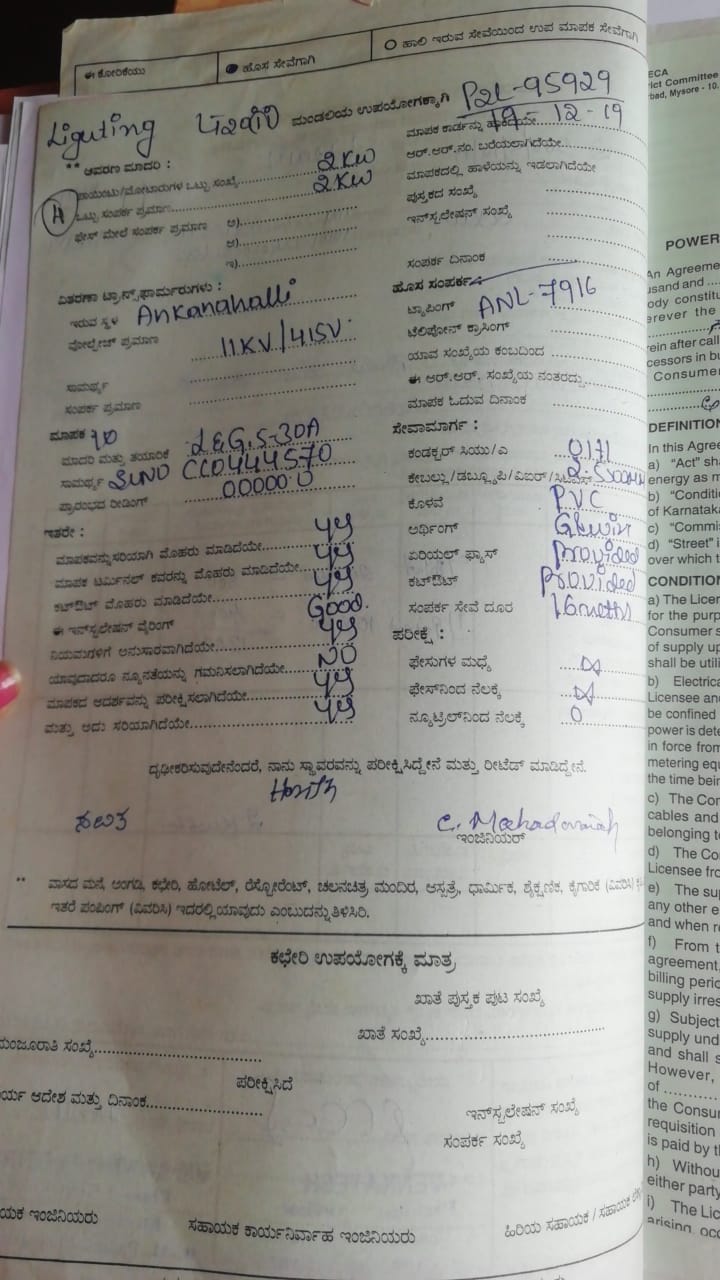 ಈ ಕೋರಿಕೆಯು
ಹೊಸ ಸೇವೆಗಾಗಿ
ಹಾಲಿ ಇರುವ ಸೇವೆಯಿಂದ ಉಪ ಮಾಪಕ ಸೇವೆಗಾಗಿ
Lighting
ಮಂಡಲಿಯ ಉಪಯೋಗಕ್ಕಾಗಿ P2L-95929
** ಆವರಣ ಮಾದರಿ :
ಪಾಯಿಂಟು/ಮೋಟಾರುಗಳ ಒಟ್ಟು ಸಂಖ್ಯೆ 2KW
ಒಟ್ಟು ಸಂಪರ್ಕ ಪ್ರಮಾಣ 2KW
ಫೇಸ್ ಮೇಲೆ ಸಂಪರ್ಕ ಪ್ರಮಾಣ ಅ)
ಆ)
ಇ)
ವಿತರಣಾ ಟ್ರಾನ್ಸ್‌ಫಾರ್ಮರುಗಳು :
ಇರುವ ಸ್ಥಳ Ankanahalli
ವೋಲ್ಟೇಜ್ ಪ್ರಮಾಣ 11KV/415V
ಸಾಮರ್ಥ್ಯ
ಸಂಪರ್ಕ ಪ್ರಮಾಣ
ಮಾಪಕ
ಮಾದರಿ ಮತ್ತು ತಯಾರಿಕೆ L&G, 5-30A
ಸಾಮರ್ಥ್ಯ SLNO CC0444570
ಪ್ರಾರಂಭದ ರೀಡಿಂಗ್ 00000.0
ಇತರೇ :
ಮಾಪಕವನ್ನು ಸರಿಯಾಗಿ ಮೊಹರು ಮಾಡಿದೆಯೇ
ಮಾಪಕ ಟರ್ಮಿನಲ್ ಕವರನ್ನು ಮೊಹರು ಮಾಡಿದೆಯೇ
ಕಟ್‌ಔಟ್ ಮೊಹರು ಮಾಡಿದೆಯೇ
ಈ ಇನ್‌ಸ್ಟಲೇಷನ್ ವೈರಿಂಗ್ Good.
ನಿಯಮಗಳಿಗೆ ಅನುಸಾರವಾಗಿದೆಯೇ
ಯಾವುದಾದರೂ ನ್ಯೂನತೆಯನ್ನು ಗಮನಿಸಲಾಗಿದೆಯೇ NO
ಮಾಪಕದ ಆದರ್ಶವನ್ನು ಪರೀಕ್ಷಿಸಲಾಗಿದೆಯೇ
ಮತ್ತು ಅದು ಸರಿಯಾಗಿದೆಯೇ
ಮಾಪಕ ಕಾರ್ಡನ್ನು ಹಾಕಿದೆಯೇ 19-12-19
ಆರ್.ಆರ್.ನಂ. ಬರೆಯಲಾಗಿದೆಯೇ
ಮಾಪಕದಲ್ಲಿ ಹಾಳೆಯನ್ನು ಇಡಲಾಗಿದೆಯೇ
ಪುಸ್ತಕದ ಸಂಖ್ಯೆ
ಇನ್‌ಸ್ಟಲೇಷನ್ ಸಂಖ್ಯೆ
ಸಂಪರ್ಕ ದಿನಾಂಕ
ಹೊಸ ಸಂಪರ್ಕ
ಟ್ಯಾಪಿಂಗ್ ANL-7916
ಟೆಲಿಫೋನ್ ಕ್ರಾಸಿಂಗ್
ಯಾವ ಸಂಖ್ಯೆಯ ಕಂಬದಿಂದ
ಈ ಆರ್.ಆರ್. ಸಂಖ್ಯೆಯ ನಂತರದ್ದು
ಮಾಪಕ ಓದುವ ದಿನಾಂಕ
ಸೇವಾಮಾರ್ಗ :
ಕಂಡಕ್ಟರ್ ಸಿಯು/ಎ
ಕೇಬಲ್ಲು/ಡಬ್ಲ್ಯೂಪಿ/ವಿಐರ್/
ಕೊಳವೆ PVC
ಅರ್ಥಿಂಗ್
ಏರಿಯಲ್ ಫ್ಯೂಸ್ Provided
ಕಟ್‌ಔಟ್ Provided
ಸಂಪರ್ಕ ಸೇವೆ ದೂರ
ಪರೀಕ್ಷೆ :
ಫೇಸುಗಳ ಮಧ್ಯೆ
ಫೇಸ್‌ನಿಂದ ನೆಲಕ್ಕೆ
ನ್ಯೂಟ್ರಲ್‌ನಿಂದ ನೆಲಕ್ಕೆ 0
ದೃಢೀಕರಿಸುವುದೇನೆಂದರೆ, ನಾನು ಸ್ಥಾವರವನ್ನು ಪರೀಕ್ಷಿಸಿದ್ದೇನೆ ಮತ್ತು ರೀಟೆಡ್ ಮಾಡಿದ್ದೇನೆ.
ಇಂಜಿನಿಯರ್
** ವಾಸದ ಮನೆ, ಅಂಗಡಿ, ಕಛೇರಿ, ಹೋಟೆಲ್, ರೆಸ್ಟೋರೆಂಟ್, ಚಲನಚಿತ್ರ ಮಂದಿರ, ಆಸ್ಪತ್ರೆ, ಧಾರ್ಮಿಕ, ಶೈಕ್ಷಣಿಕ, ಕೈಗಾರಿಕೆ (ವಿವರಿಸಿ)
ಇತರೆ ಪಂಪಿಂಗ್ (ವಿವರಿಸಿ) ಇದರಲ್ಲಿ ಯಾವುದು ಎಂಬುದನ್ನು ತಿಳಿಸಿರಿ.
ಕಛೇರಿ ಉಪಯೋಗಕ್ಕೆ ಮಾತ್ರ
ಖಾತೆ ಪುಸ್ತಕ ಪುಟ ಸಂಖ್ಯೆ
ಖಾತೆ ಸಂಖ್ಯೆ
ಮಂಜೂರಾತಿ ಸಂಖ್ಯೆ
ಪರೀಕ್ಷಿಸಿದೆ
ರ್ಯ ಆದೇಶ ಮತ್ತು ದಿನಾಂಕ
ಇನ್‌ಸ್ಟಲೇಷನ್ ಸಂಖ್ಯೆ
ಸಂಪರ್ಕ ಸಂಖ್ಯೆ
ಯಕ ಇಂಜಿನಿಯರು
ಸಹಾಯಕ ಕಾರ್ಯನಿರ್ವಾಹ ಇಂಜಿನಿಯರು
ಹಿರಿಯ ಸಹಾಯಕ / ಸಹಾಯಕ
ECA
rict Committee
bad, Mysore - 10.
POWER
An Agreeme
usand and
ody constitu
erever the
rein after call
cessors in bu
Consumer
DEFINITION
In this Agree
a) "Act" sha
energy as m
b) "Conditi
of Karnataka
c) "Commi
d) "Street" i
over which t
CONDITION
a) The Licen
for the purp
Consumer s
of supply up
shall be utili
b) Electrica
Licensee and
be confined
power is dete
in force from
metering equ
the time bein
c) The Con
cables and
belonging to
d) The Con
Licensee fro
e) The sup
any other e
and when re
f) From t
agreement,
billing perio
supply irres
g) Subject
supply und
and shall s
However,
of
the Consu
requisition
is paid by th
h) Withou
either party
i) The Lic
arising, occ